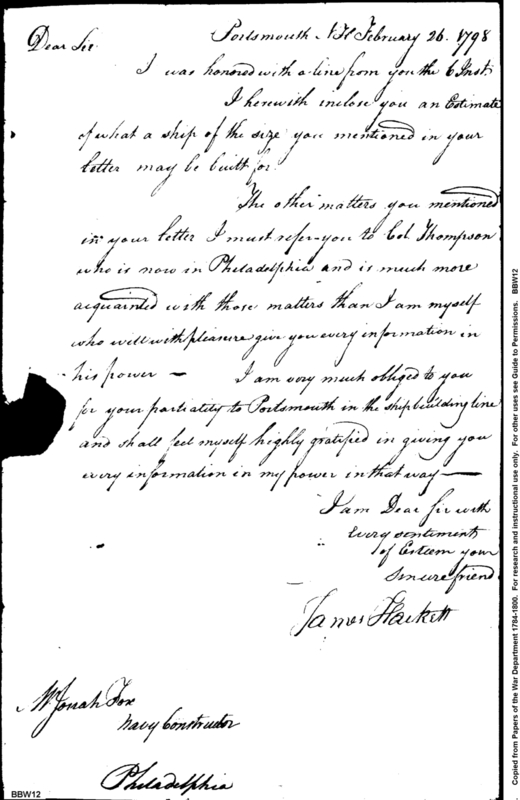 Portsmouth NH February 26. 1798
Dear Sir
I was honored with a line from you the 6 Inst.
I herewith inclose you an Estimate
of what a ship of the size you mentioned in your
letter may be built for.
The other matters you mentioned
in your letter I must refer you to Col. Thompson
who is now in Philadelphia and is much more
acquainted with those matters than I am myself
who will with pleasure give you every information in
his power — I am very much obliged to you
for your partiality to Portsmouth in the shipbuilding line
and shall feel myself highly gratified in giving you
every information in my power in that way —
I am Dear Sir with
every sentiment
of Esteem your
sincere friend
James Hackett
Mr. Josiah Fox
Navy Constructor
Philadelphia
BBW12
Copied from Papers of the War Department 1784-1800. For research and instructional use only. For other uses see Guide to Permissions. BBW12